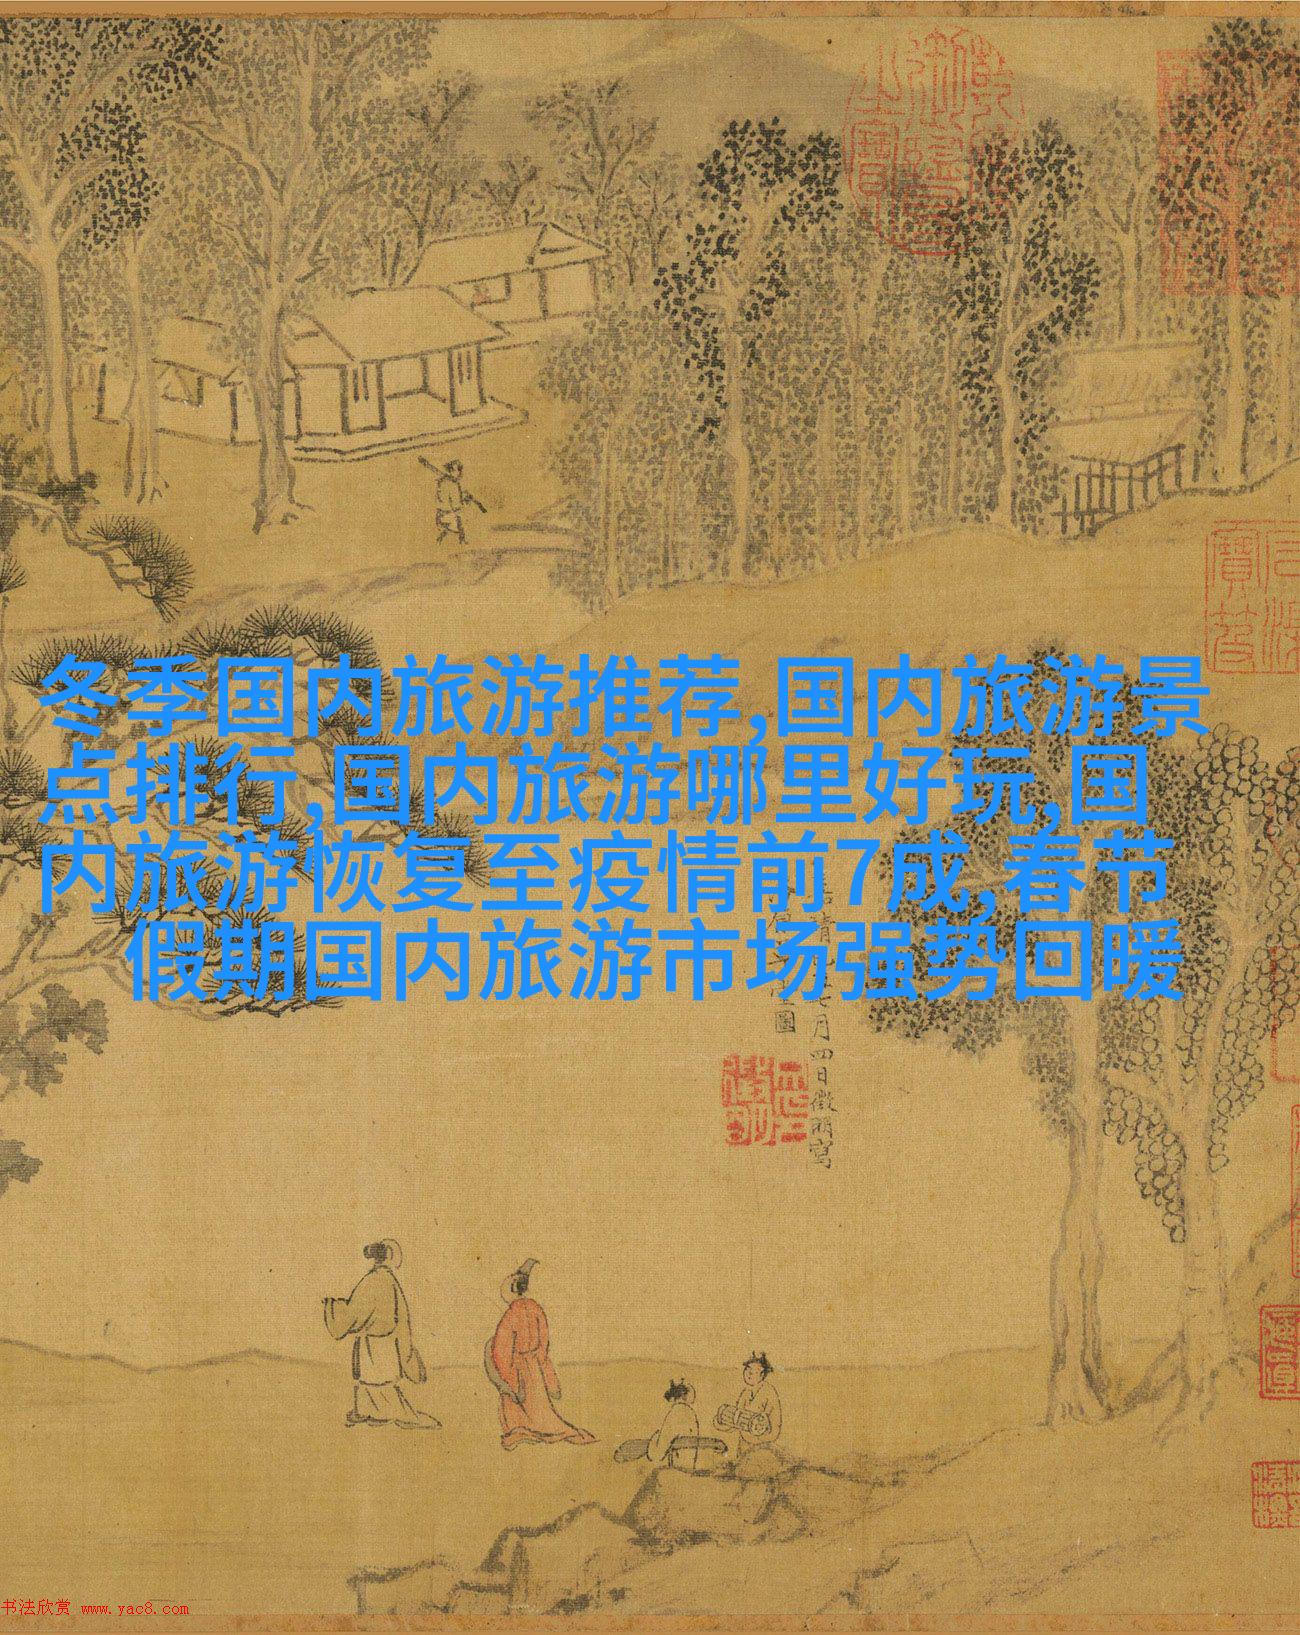 冬季国内旅游推荐,国内旅游景
点排行,国内旅游哪里好玩,国
内旅游恢复至疫情前7成,春节
假期国内旅游市场强势回暖
七月四日徵明寫
圖
书法欣赏 www.yac8.com